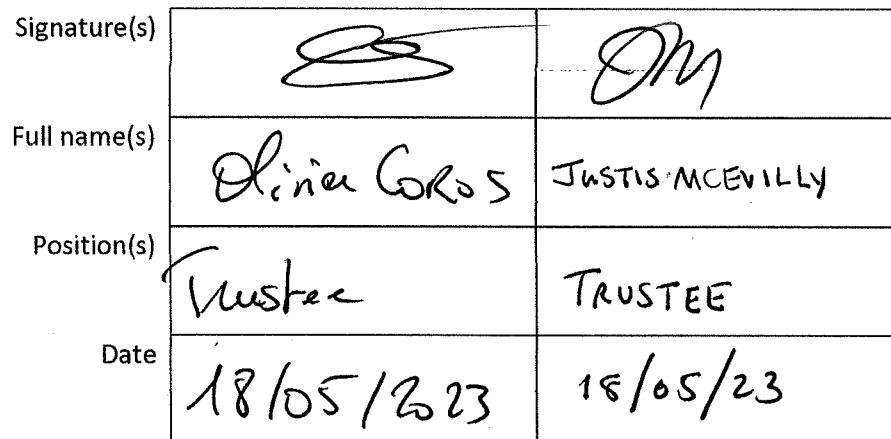 Signature(s)
Full name(s)
Olivier COROS JUSTIS MCEVILLY
Position(s)
Trustee TRUSTEE
Date
18/05/2023 18/05/23